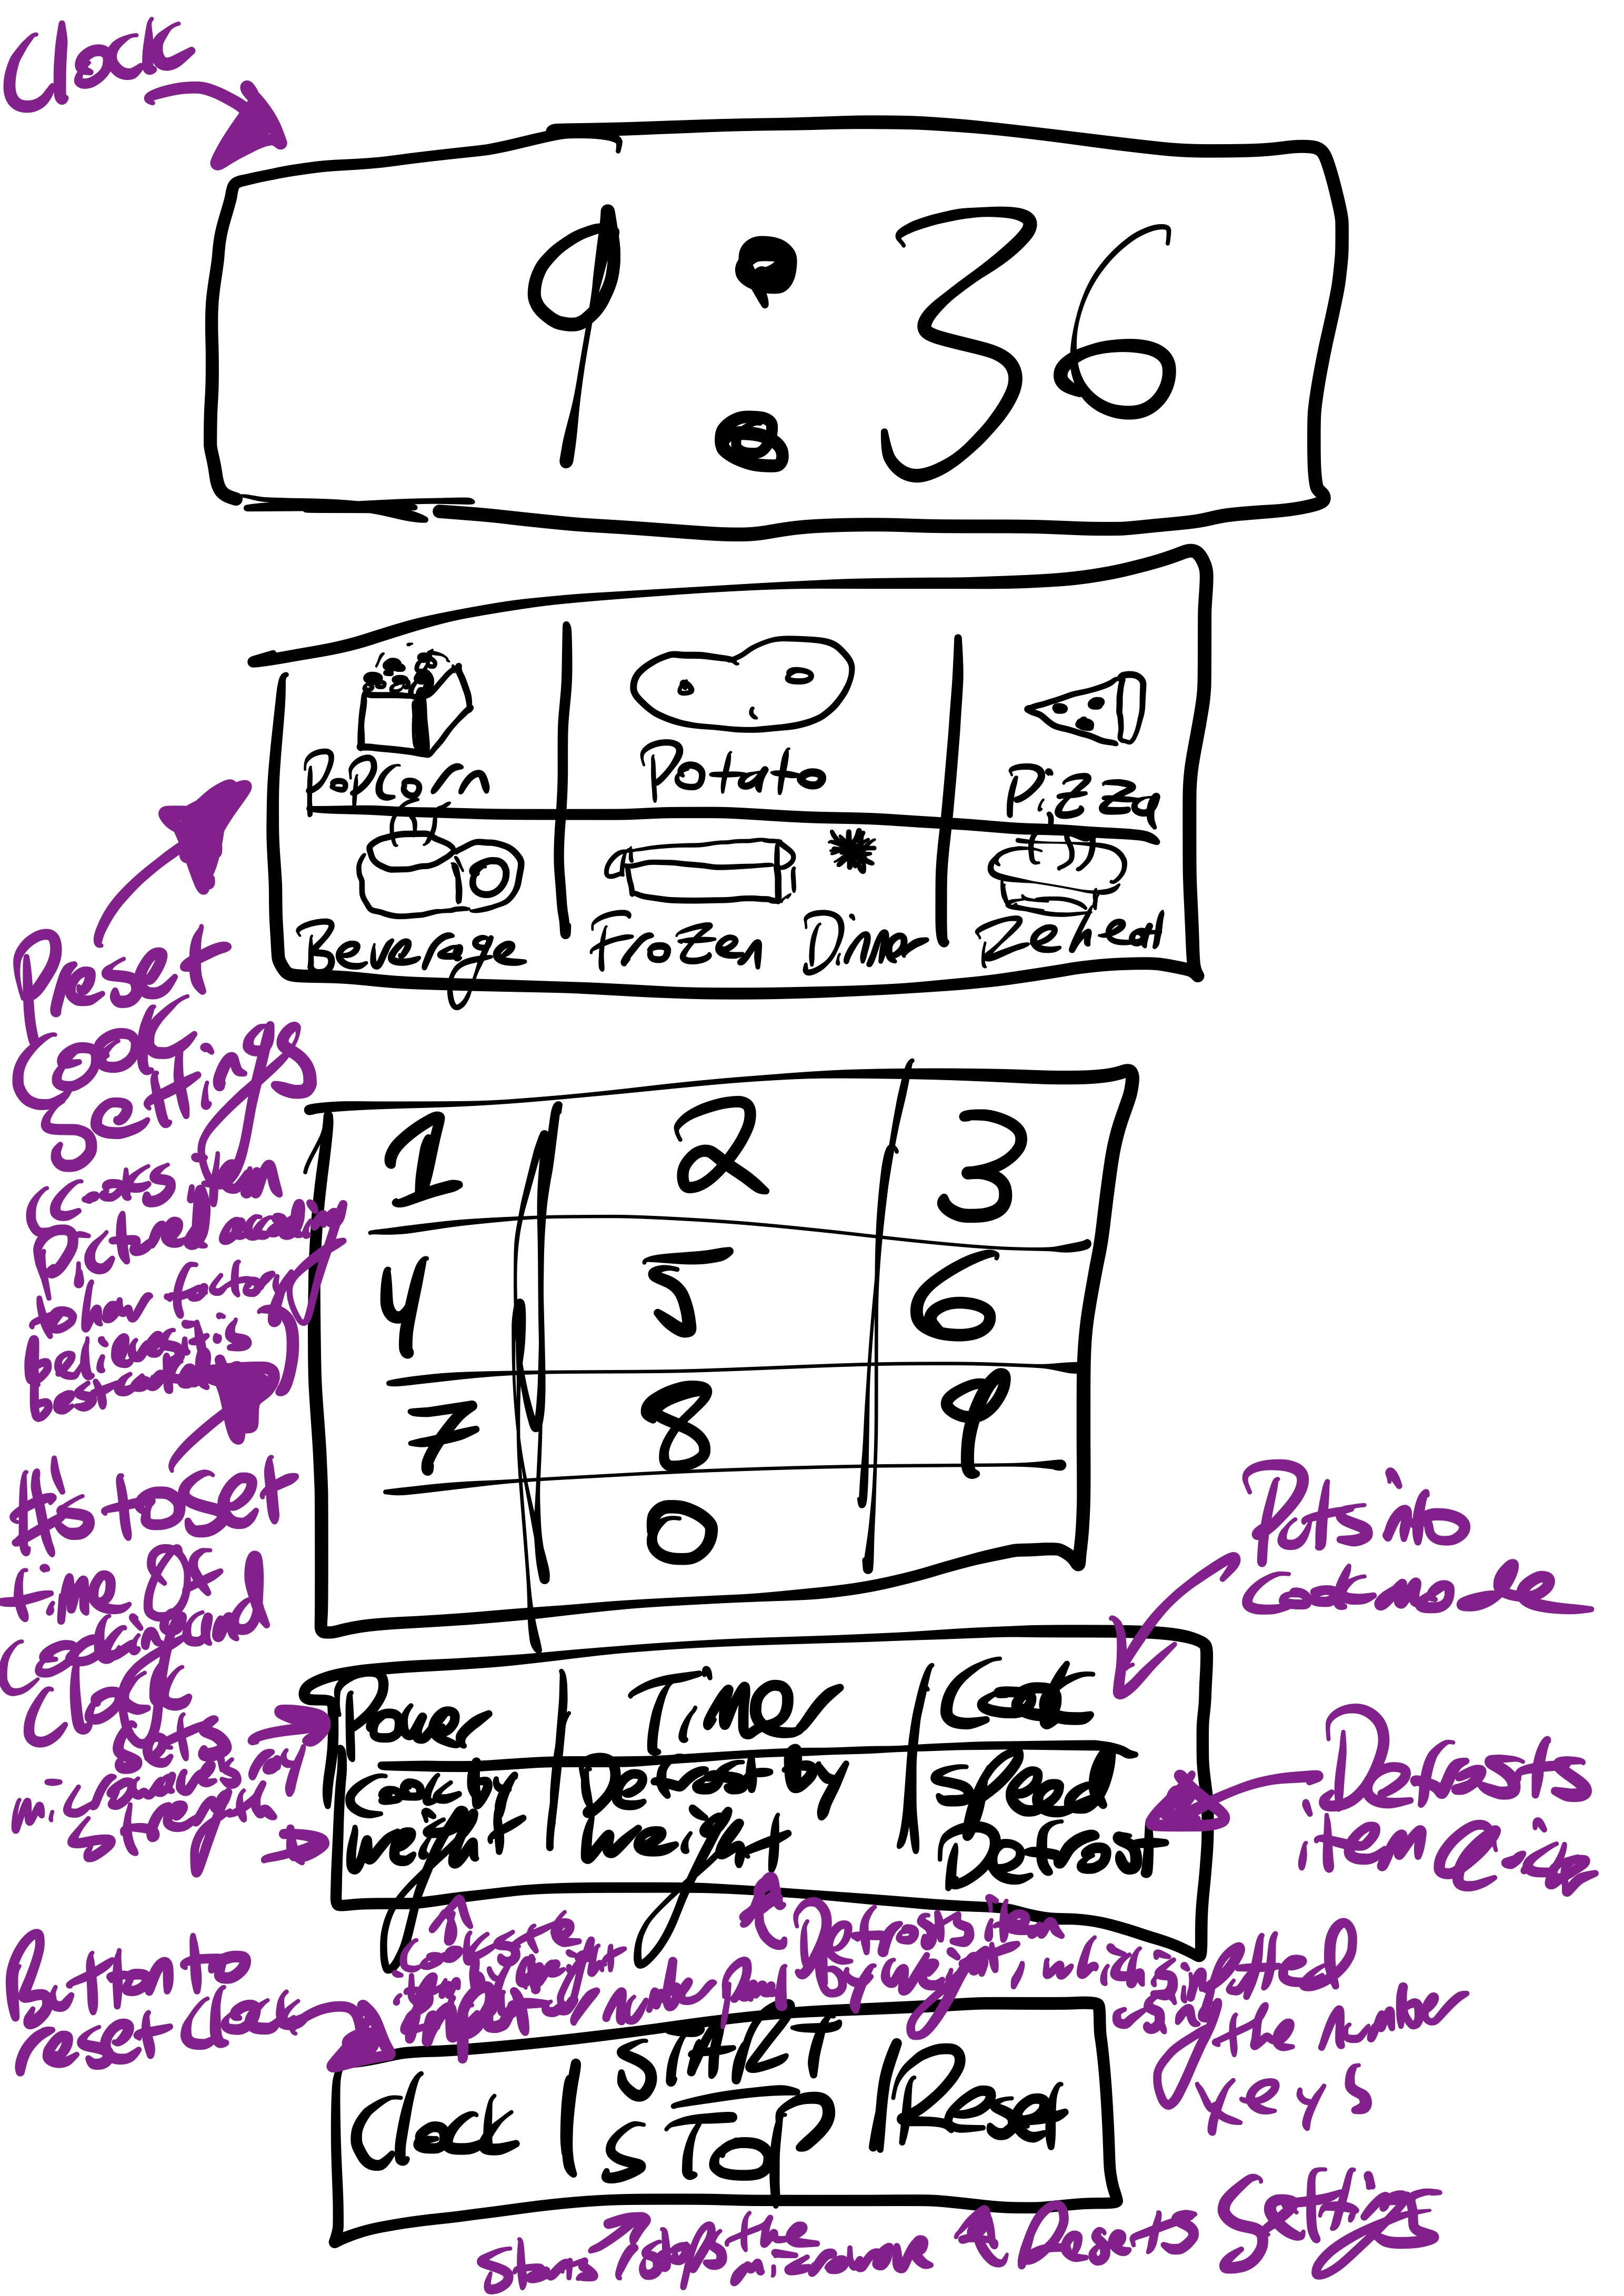 Clock
9:36
Popcorn Potato Pizza
Beverage Frozen Dinner Reheat
Preset
Cook
Settings
Cooks item
pictured according
to how factory
believes it is
best cooked
1 2 3
4 5 6
7 8 9
0
#'s to set
time of
cooking and
Clock
Puts into
Cook mode
Power Timer Cook
Cook by Weight
Defrost by Weight
Speed Defrost
Sets
microwaves ray
strength
Defrosts
item quick
Cooks the
item by weight
number pad
Defrosts item
by weight, which is inputted
using
the number
keys
Button to
reset clock
Clock START STOP Reset
Starts / stops the
microwave
Resets Settings